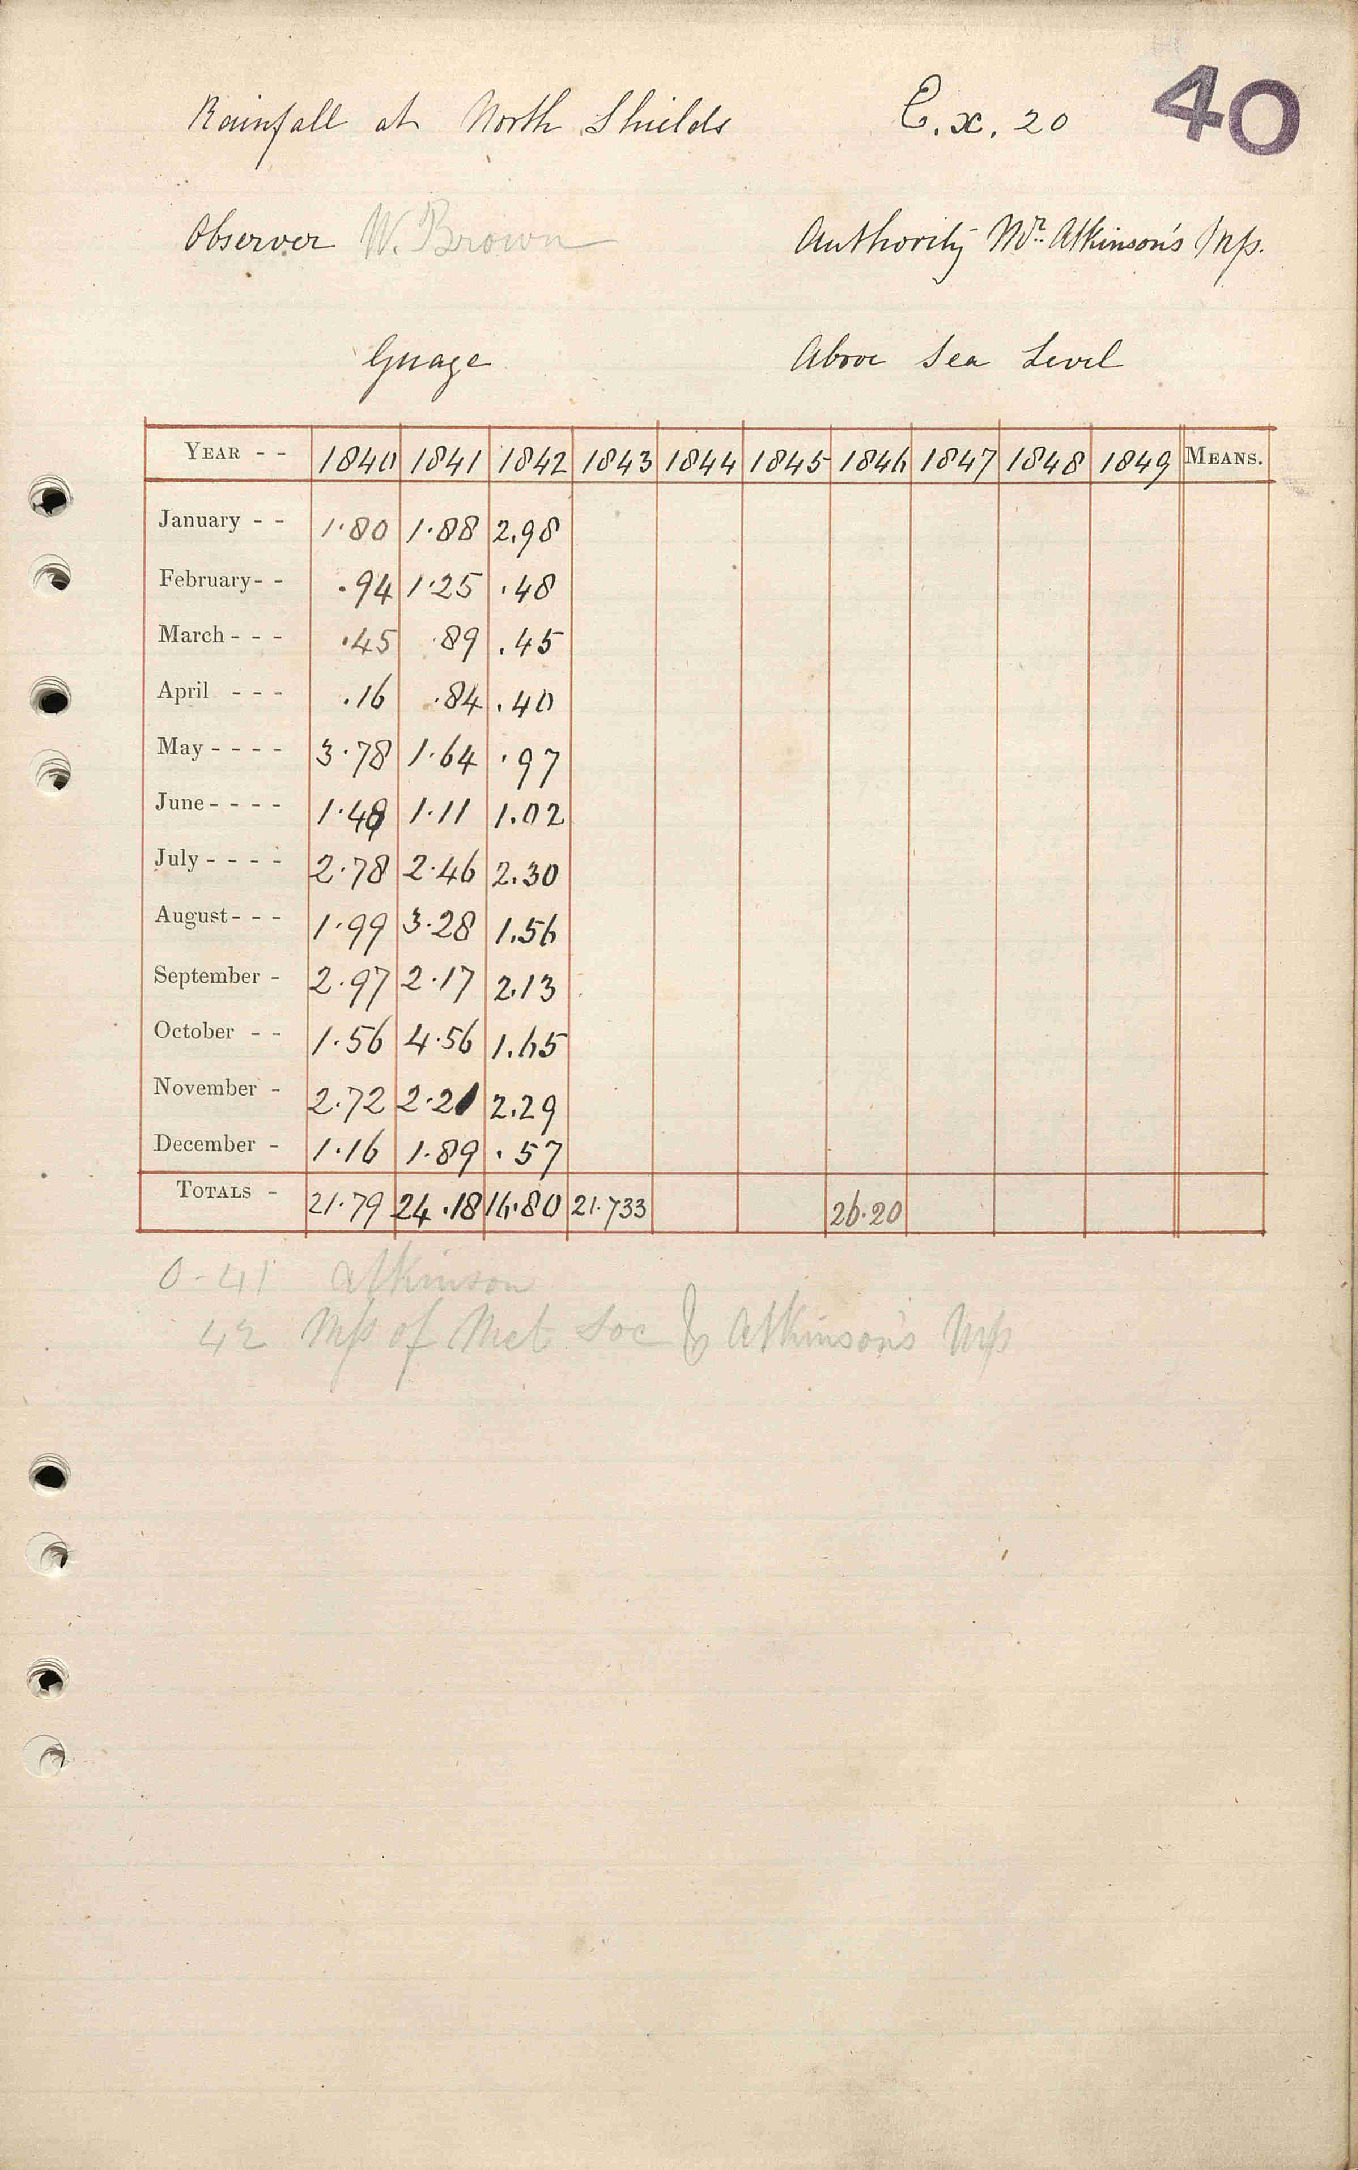 40
Rainfall at North Shields C.x. 20
Observer W. Brown Authority Mr. Atkinson's Mss.
Guage Above Sea Level
YEAR - - 1840 1841 1842 1843 1844 1845 1846 1847 1848 1849 MEANS.
January - - 1.80 1.88 2.98
February - - .94 1.25 .48
March - - - .45 .89 .45
April - - - .16 .84 .40
May - - - - 3.78 1.64 .97
June - - - - 1.48 1.11 1.02
July - - - - 2.78 2.46 2.30
August - - - 1.99 3.28 1.56
September - 2.97 2.17 2.13
October - - 1.56 4.56 1.65
November - 2.72 2.21 2.29
December - 1.16 1.89 .57
TOTALS - 21.79 24.18 16.80 21.733 26.20
0-41 Atkinson
42 Mss of Met Soc & Atkinson's Mss